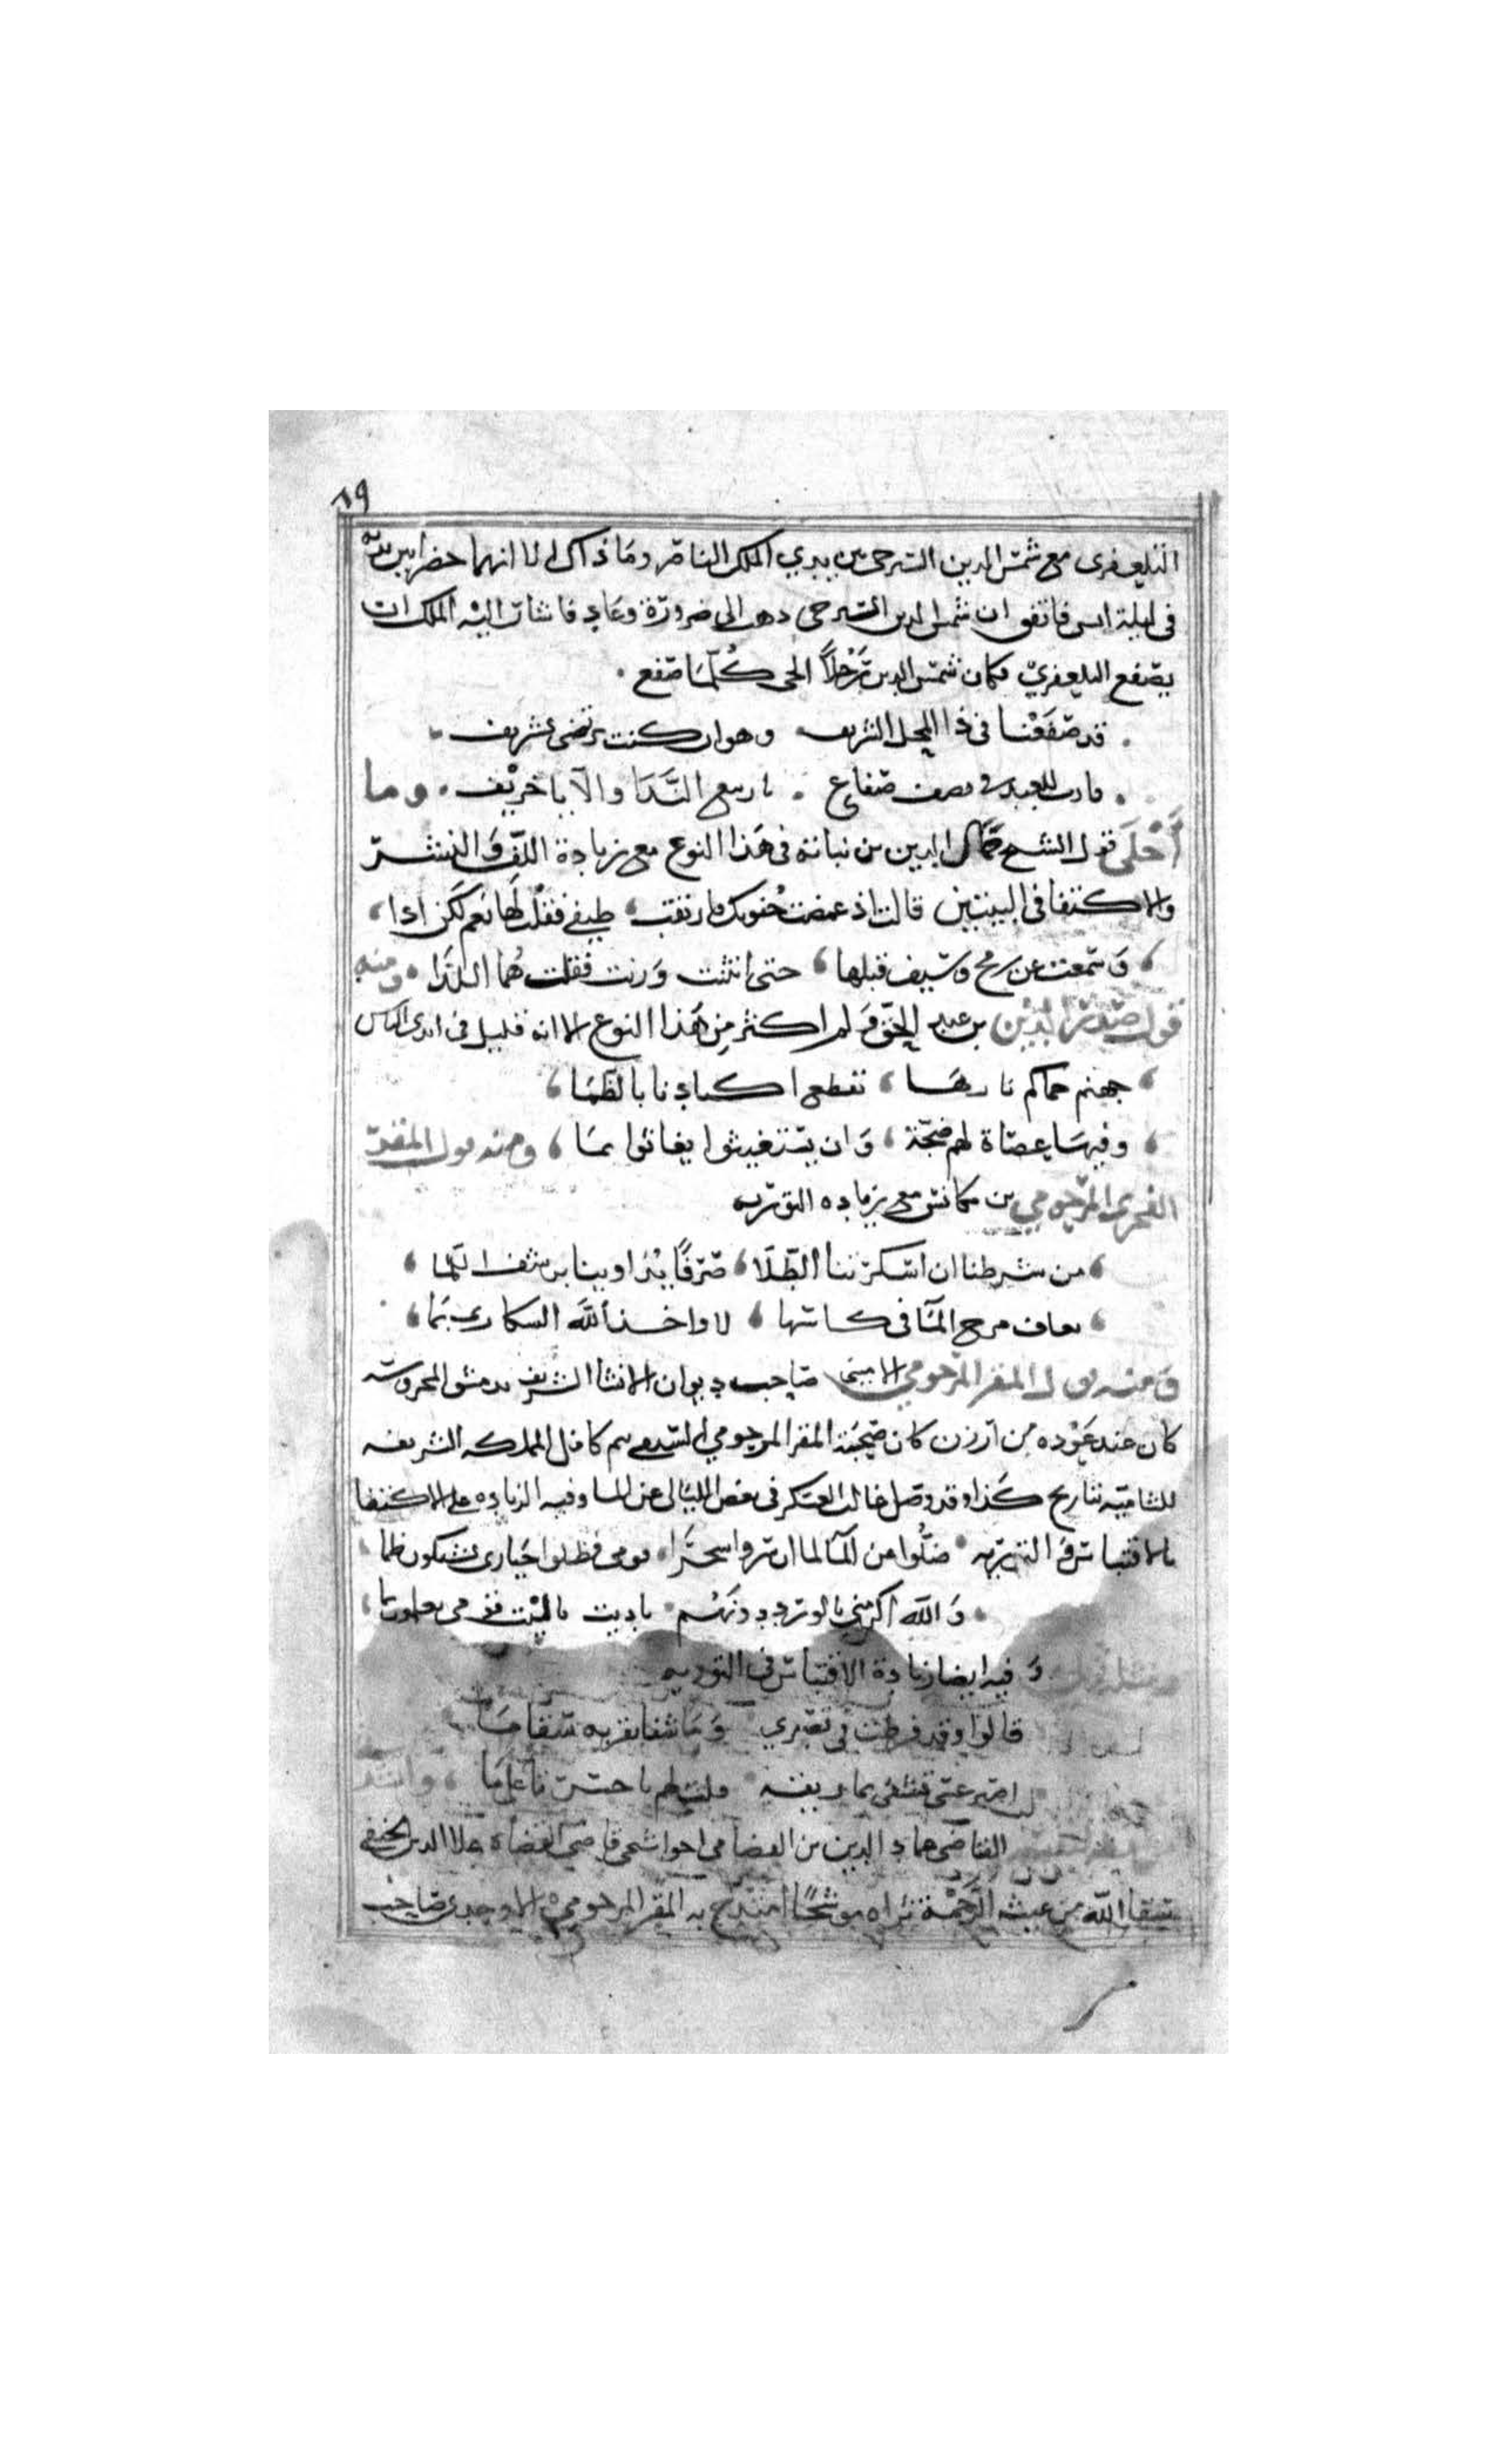 ١٩
التلعفرى مع شمس الدين الشرجى بين يدي الملك الناصر وما ذاك الا انهما حضرا بين يديه
فى ليلة انس فاتفق ان شمس الدين الشرجى ذهب الى ضرورة وعاد فاشار اليه الملك ان
يصفع التلعفري فكان شمس الدين رَجُلاً الحى كُلّما صفع .
قد صَفَعْنا فى ذا المحل الشريف وهو ان كنت ترتضى تشريف
فارث للعبد فى مصيف صفاع يا ربيع النَّدَا والا يا خريف . وما
أَحْلَى قول الشيخ جمال الدين بن نباتة فى هذا النوع مع زيادة اللف والنشر
والاكتفا فى البيتين قالت اذ غمضت جفونك فارتقب طيفي فقلت لها نعم لكن اذا
وسمعت عن رمح وسيف قبلها حتى انثنت ورنت فقلت هُما اللذا . ومنه
قول صدر الدين بن عبد الحق ولم اكثر من هذا النوع الا انه قليل فى ايدى الناس
جهنم حماكم نارها تقطع اكبادنا بالظما
وفيها عصاة لهم ضجة وان يستغيثوا يغاثوا بما ومنه قول المقر
الفخرى المرحومي بن مكانس مع زيادة التورية
من شرطنا ان اسكرتنا الطّلا صرفًا يتداوينا برشف اللما
نعاف مزج الما فى كاسها لا واخذ الله السكارى بما
ومنه قول المقر المرحومي الامينى صاحب ديوان الانشا الشريف بدمشق المحروسه
كان عند عَوْده من ارزن كان صحبة المقر المرحومي كافل المملكه الشريفه
الشاميه بتاريخ كذا وقد وصل غالب العسكر فى بعض الليالى عن الما وفيه الزياده على الاكتفا
بالاقتباس فى التورية ضلُّوا عن المآ لما ان سروا سحرًا قومى فظلوا حيارى يشتكون ظما
وَالله اكرمنى بالورد دونهُم يا ليت قومى يعلمون بما
ومثله قوله وَفيه ايضا زيادة الاقتباس فى التوريه
قالوا وقد فرطت فى تصبري وَما شفا بقربه سقاما
اصبر عسى تشفى بما ريقه قلت لهم يا حسرتا على ما وانشد
القاضى عماد الدين بن القضامى قاضى القضاة علا الدين الحنفى
سقا الله من غيث الرحمة ثراه موشحًا امتدح به المقر المرحومي الاوحدى صاحب